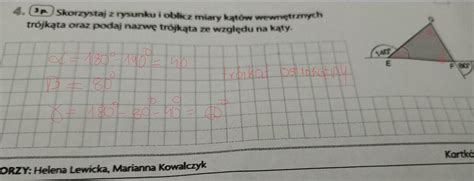 4. 3 p. Skorzystaj z rysunku i oblicz miary kątów wewnętrznych
trójkąta oraz podaj nazwę trójkąta ze względu na kąty.
α = 180° 140° = 40
β = 80°
trójkąt ostrokątny
γ = 180° - 80° - 40° = 60°
G
E
F
ORZY: Helena Lewicka, Marianna Kowalczyk
Kartkó